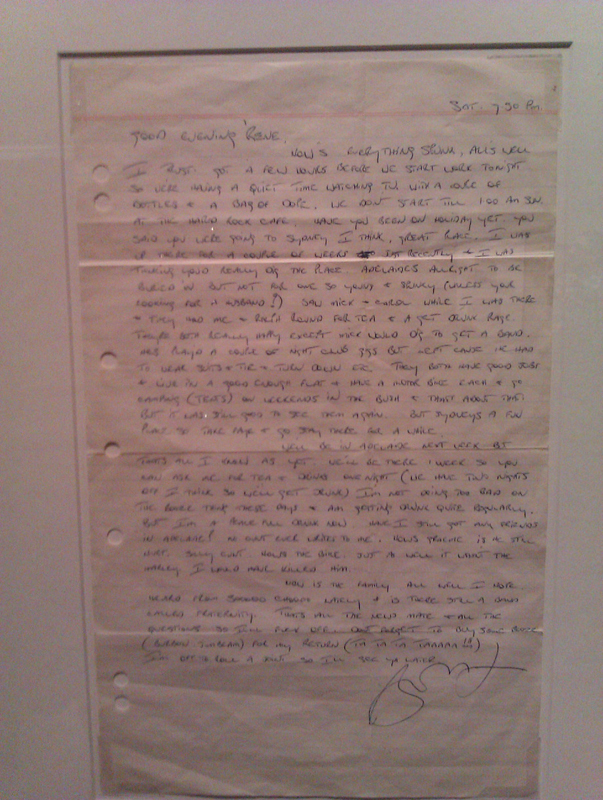 SAT. 7.30 PM.
GOOD EVENING 'RENE,
HOW'S EVERYTHING SHUNK, ALLS WELL
I TRUST. GOT A FEW HOURS BEFORE WE START WORK TONIGHT
SO WERE HAVING A QUIET TIME WATCHING TV WITH A COUPLE OF
BOTTLES & A BAG OF DOPE. WE DON'T START TILL 1.00 AM SUN.
AT THE HARD ROCK CAFE. HAVE YOU BEEN ON HOLIDAY YET. YOU
SAID YOU WERE GOING TO SYDNEY I THINK, GREAT PLACE. I WAS
UP THERE FOR A COUPLE OF WEEKS JUST RECENTLY & I WAS
THINKING YOU'D REALLY DIG THE PLACE. ADELAIDES ALLRIGHT TO BE
BURIED IN BUT NOT FOR ONE SO YOUNG & (UNLESS YOUR
LOOKING FOR A HUSBAND!) SAW MICK & CAROL WHILE I WAS THERE
& THEY HAD ME & ROUND FOR TEA & A GET DRUNK RAGE.
THEY'RE BOTH REALLY HAPPY EXCEPT MICK WOULD DIG TO GET A BAND.
HES PLAYED A COUPLE OF NIGHT CLUB GIGS BUT LEFT CAUSE HE HAD
TO WEAR SUITS & TIE & TURN DOWN ETC. THEY BOTH HAVE GOOD JOBS
& LIVE IN A GOOD ENOUGH FLAT & HAVE A MOTOR BIKE EACH & GO
CAMPING (TENTS) ON WEEKENDS IN THE BUSH & THAT'S ABOUT THAT.
BUT IT WAS STILL GOOD TO SEE THEM AGAIN. BUT SYDNEYS A FUN
PLACE SO TAKE & GO STAY THERE FOR A WHILE.
WE'LL BE IN ADELAIDE NEXT WEEK BUT
THATS ALL I KNOW AS YET. WE'LL BE THERE 1 WEEK SO YOU
CAN ASK ME FOR TEA & DRINKS ONE NIGHT (WE HAVE TWO NIGHTS
OFF I THINK SO WE'LL GET DRUNK) I'M NOT DOING TOO BAD ON
THE BOOZE TRIP THESE DAYS & AM GETTING DRUNK QUITE REGULARLY.
BUT I'M A DRUNK NOW. HAVE I STILL GOT ANY FRIENDS
IN ADELAIDE? NO CUNT EVER WRITES TO ME. HOWS IS HE STILL
HURT. SILLY CUNT. HOWS THE BIKE. JUST AS WELL IT WASN'T THE
HARLEY I WOULD HAVE KILLED HIM.
HOW IS THE FAMILY ALL WELL I HOPE.
HEARD FROM LATELY & IS THERE STILL A
FRATERNITY. THATS ALL THE NEWS MATE & ALL THE
QUESTIONS SO I'LL FUCK OFF. DONT FORGET TO BUY SOME BOOZE
(BURBON JIMBEAM) FOR MY RETURN (TA TA TA TAAAAA!!)
I'M OFF TO ROLL A JOINT SO I'LL SEE YA LATER